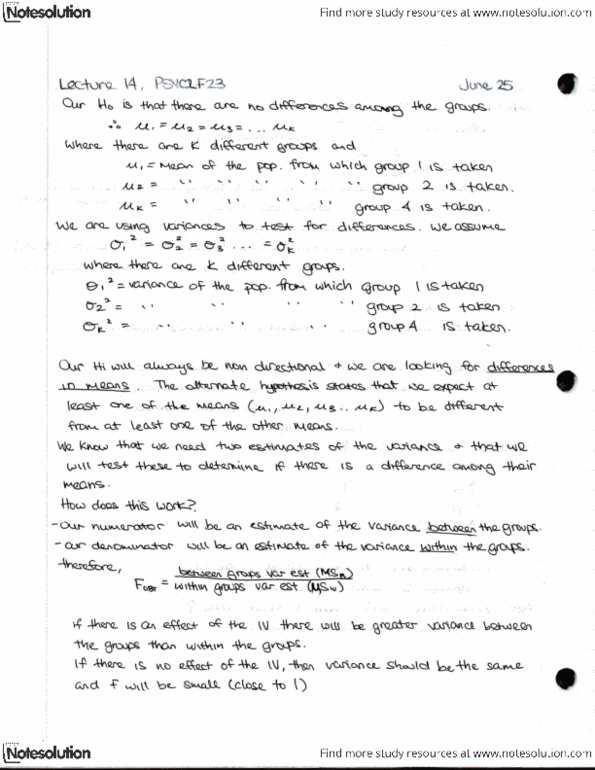 Notesolution
Find more study resources at www.notesolution.com
Lecture 14, PSYCLF23 June 25
Our Ho is that there are no differences among the groups.
∴ μ1 = μ2 = μ3 = ... μk
where there are K different groups and
μ1 = mean of the pop. from which group 1 is taken
μ2 = " " " " " group 2 is taken.
μk = " " " " group 4 is taken.
We are using variances to test for differences. We assume
σ1² = σ2² = σ3² ... = σk²
where there are K different groups.
σ1² = variance of the pop. from which group 1 is taken
σ2² = " " " " group 2 is taken
σk² = " " " " group 4 is taken.
Our Hi will always be non directional & we are looking for differences
in means. The alternate hypothesis states that we expect at
least one of the means (μ1, μ2, μ3.. μk) to be different
from at least one of the other means.
We know that we need two estimates of the variance & that we
will test these to determine if there is a difference among their
means.
How does this work?
- Our numerator will be an estimate of the variance between the groups.
- our denominator will be an estimate of the variance within the groups.
therefore,
between groups var est (MSB)
Fobt = within groups var est (MSW)
if there is an effect of the IV there will be greater variance between
the groups than within the groups.
If there is no effect of the IV, then variance should be the same
and F will be small (close to 1)
Notesolution
Find more study resources at www.notesolution.com